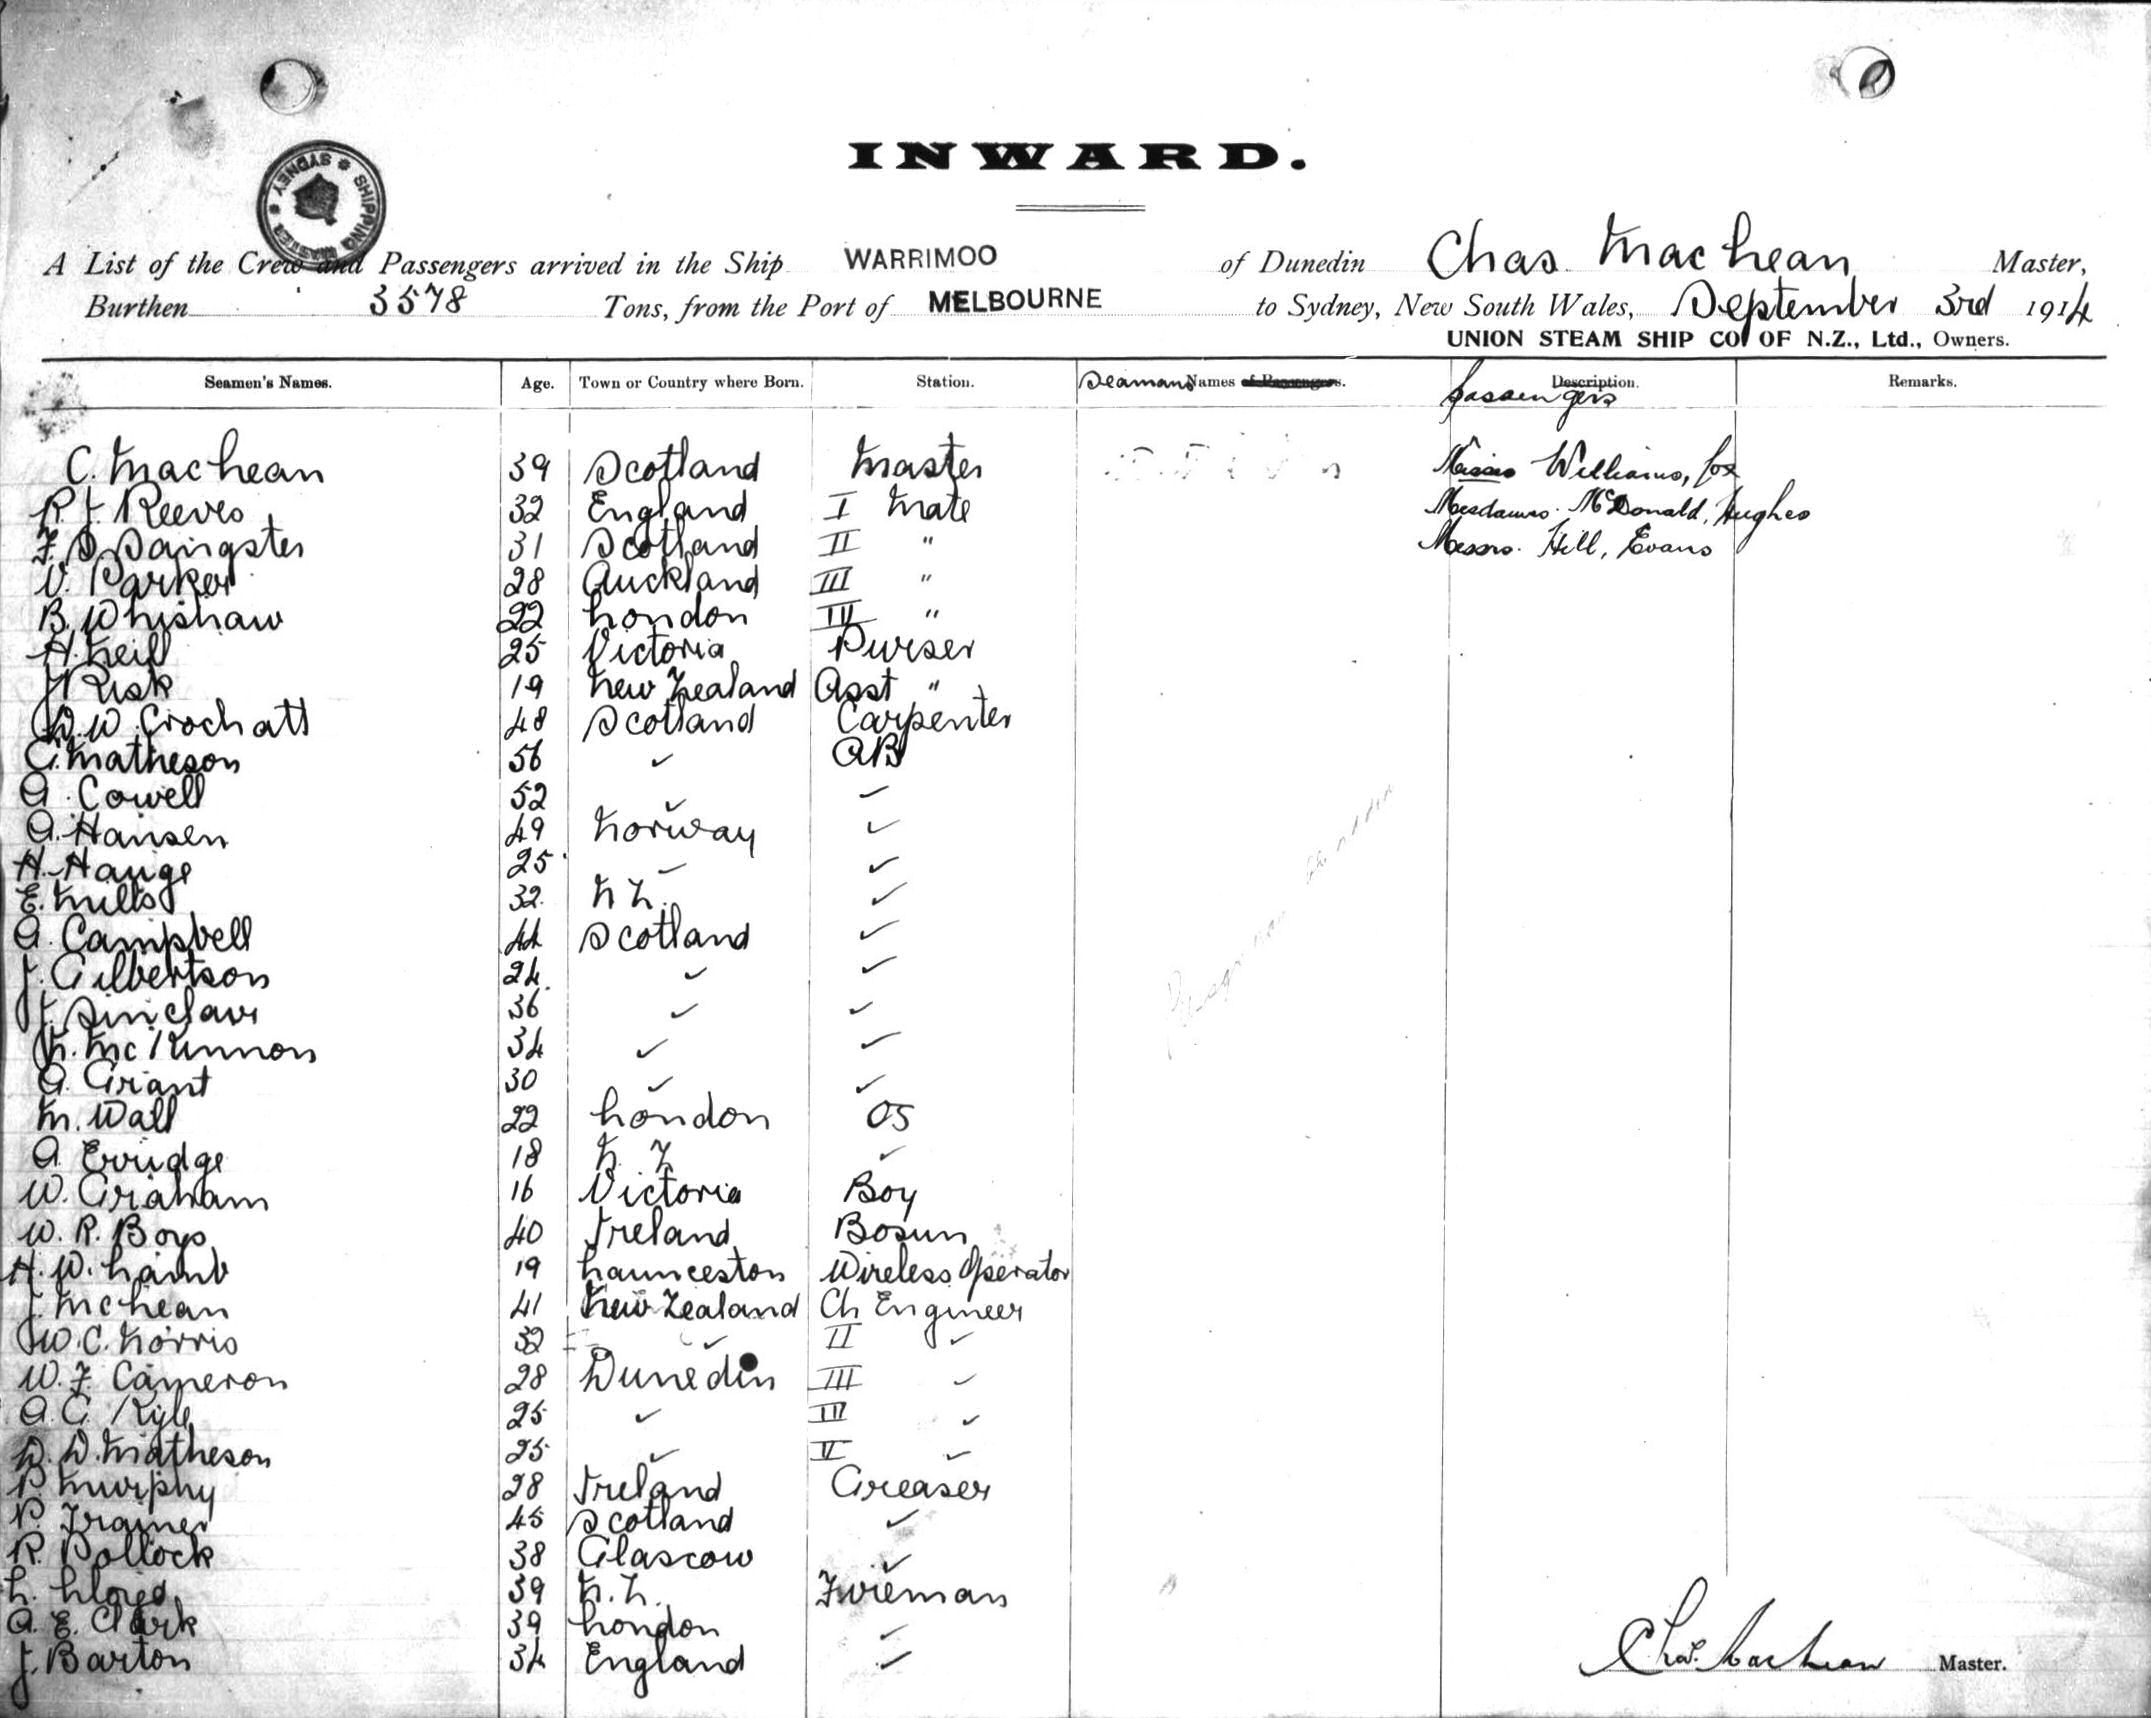 SHIPPING MASTER * SYDNEY *
INWARD.
A List of the Crew and Passengers arrived in the Ship WARRIMOO of Dunedin Chas MacLean Master,
Burthen 3578 Tons, from the Port of MELBOURNE to Sydney, New South Wales, September 3rd 1914
UNION STEAM SHIP CO OF N.Z., Ltd., Owners.
Seamen's Names. Age. Town or Country where Born. Station. Seamans Names of Passengers. Description. Remarks.
Passengers
C. MacLean 39 Scotland Master Misses Williams, Cox
R. J. Reeves 32 England I Mate Mesdames. McDonald, Hughes
F. S Sangster 31 Scotland II " Messrs. Hill, Evans
V. Parker 28 Auckland III "
B. Whishaw 22 London IV "
H. Neill 25 Victoria Purser
J Rusk 19 New Zealand Asst "
D. W. Crochatt 48 Scotland Carpenter
C. Matheson 56 ✓ AB
A. Cowell 52 ✓ ✓
A. Hansen 49 Norway ✓
H. Hauge 25 ✓ ✓
E. Mills 32 N Z. ✓
A. Campbell 44 Scotland ✓
J. Gilbertson 24 ✓ ✓
J. Sinclair 36 ✓ ✓
N. McKinnon 34 ✓ ✓
A. Grant 30 ✓ ✓
M. Wall 22 London OS
A. Erridge 18 N Z ✓
W. Graham 16 Victoria Boy
W. R. Boys 40 Ireland Bosun
H. W. Lamb 19 Launceston Wireless Operator
J. McLean 41 New Zealand Ch Engineer
W. C. Norris 32 ✓ II ✓
W. F. Cameron 28 Dunedin III ✓
A. G. Kyle 25 ✓ IV ✓
D. D. Matheson 25 ✓ V ✓
P. Murphy 28 Ireland Greaser
P. Trainer 45 Scotland ✓
R. Pollock 38 Glascow ✓
L. Lloyd 39 N. Z. Fireman
A. E. Clark 39 London ✓
J. Barton 34 England ✓
Chas. MacLean Master.